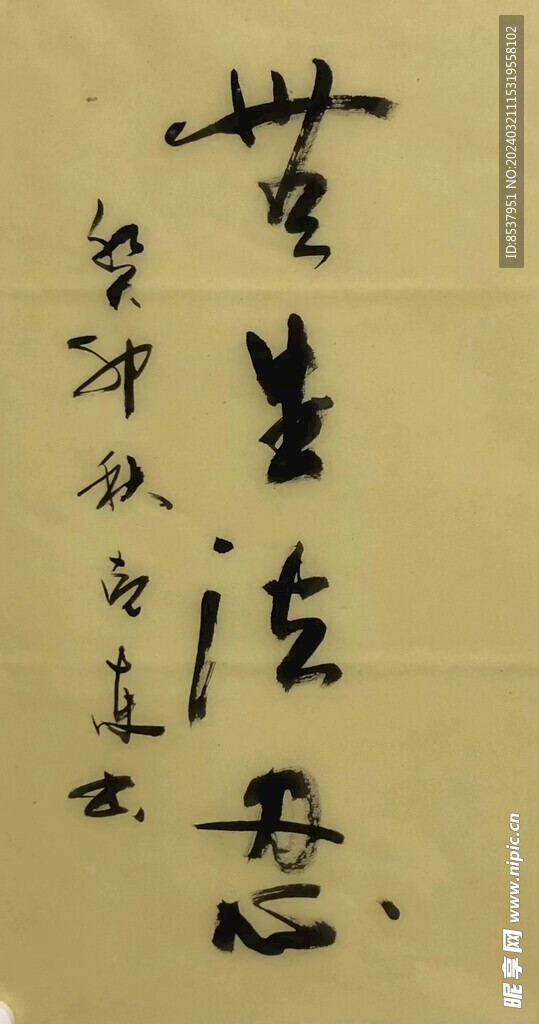 無生法忍
癸卯秋
ID:8537951 NO:20240321115319558102
昵享网 www.nipic.cn